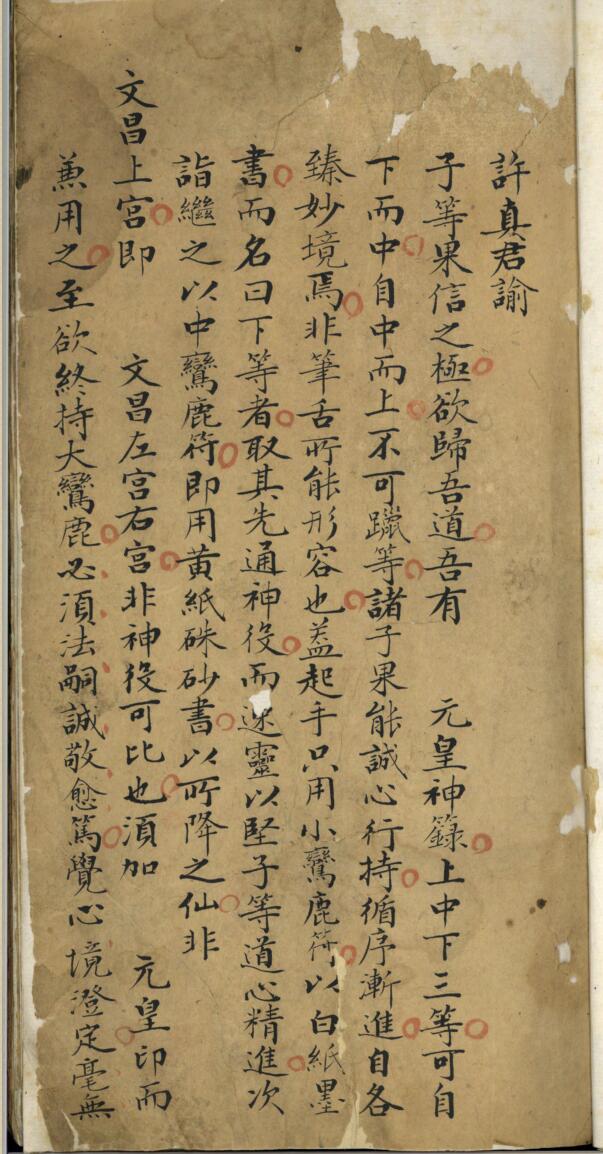 許真君諭
子等果信之極欲歸吾道吾有　元皇神籙上中下三等可自
下而中自中而上不可躐等諸子果能誠心行持循序漸進自各
臻妙境焉非筆舌所能形容也蓋起手只用小鸞鹿符以白紙墨
書而名曰下等者取其先通神役而迷靈以堅子等道心精進次
詣繼之以中鸞鹿符即用黃紙硃砂書以所降之仙非
文昌上宮即　文昌左宮右宮非神役可比也須加　元皇印而
兼用之至欲終持大鸞鹿必須法嗣誠敬愈篤覺心境澄定毫無